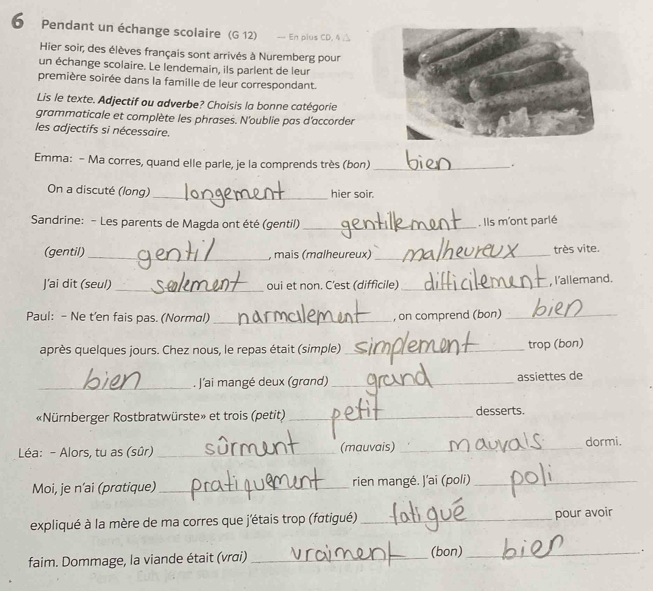 6 Pendant un échange scolaire (G 12) — En plus CD, 4 △
Hier soir, des élèves français sont arrivés à Nuremberg pour
un échange scolaire. Le lendemain, ils parlent de leur
première soirée dans la famille de leur correspondant.
Lis le texte. Adjectif ou adverbe? Choisis la bonne catégorie
grammaticale et complète les phrases. N'oublie pas d'accorder
les adjectifs si nécessaire.
Emma: – Ma corres, quand elle parle, je la comprends très (bon) bien.
On a discuté (long) longement hier soir.
Sandrine: – Les parents de Magda ont été (gentil) gentillement. Ils m'ont parlé
(gentil) gentil, mais (malheureux) malheureux très vite.
J'ai dit (seul) seulement oui et non. C'est (difficile) difficilement, l'allemand.
Paul: – Ne t'en fais pas. (Normal) narmalement, on comprend (bon) bien
après quelques jours. Chez nous, le repas était (simple) simplement trop (bon)
bien. J'ai mangé deux (grand) grand assiettes de
«Nürnberger Rostbratwürste» et trois (petit) petit desserts.
Léa: – Alors, tu as (sûr) sûrment (mauvais) mauvais dormi.
Moi, je n'ai (pratique) pratiquement rien mangé. J'ai (poli) poli
expliqué à la mère de ma corres que j'étais trop (fatigué) fatigué pour avoir
faim. Dommage, la viande était (vrai) vraiment (bon) bien.